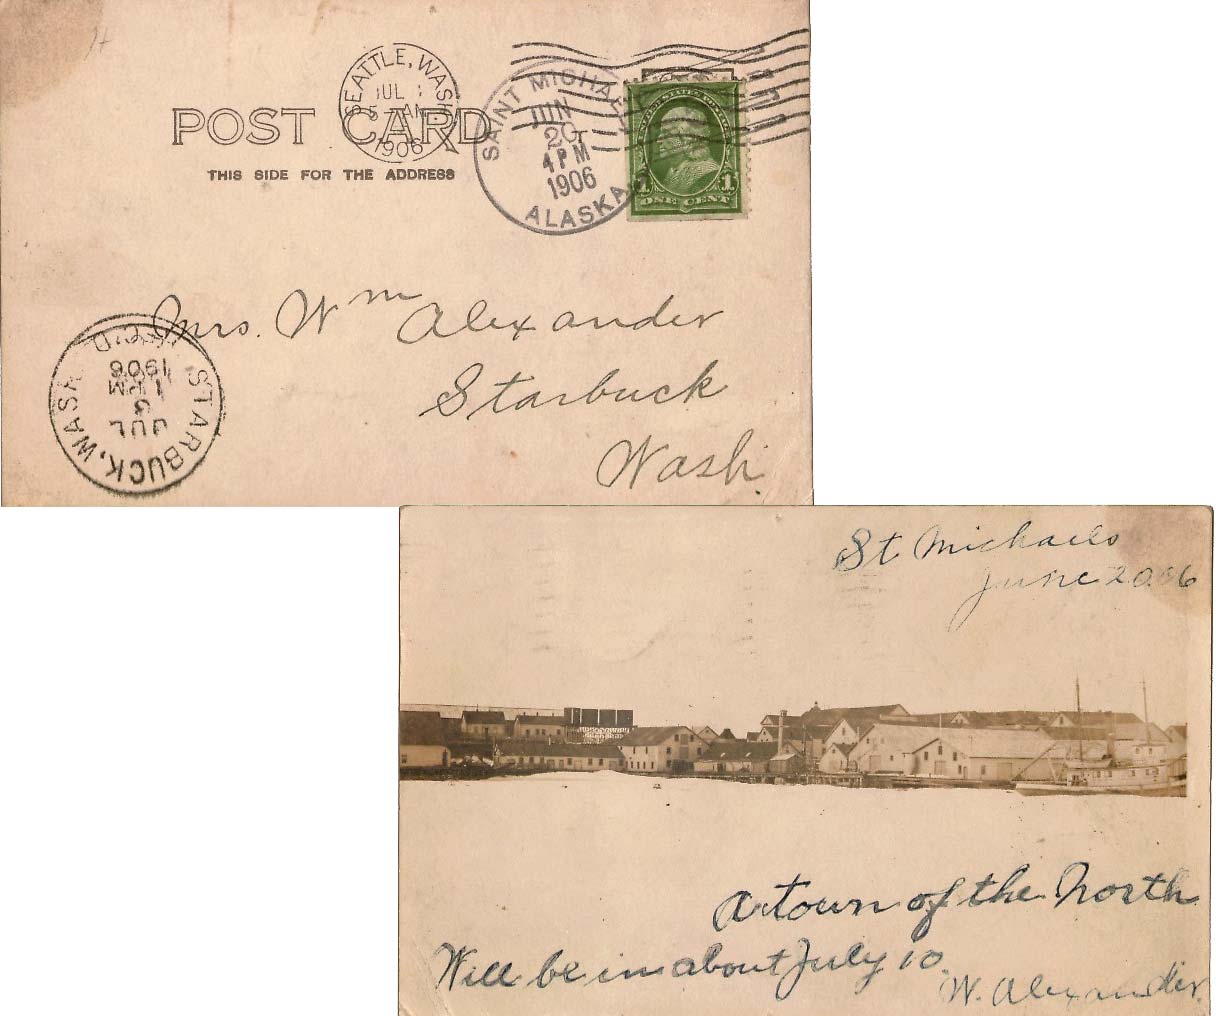 SEATTLE, WASH.
JUL
5 - AM
1906
SAINT MICHAEL
JUN
20
4 PM
1906
ALASKA
POST CARD
THIS SIDE FOR THE ADDRESS
1 1
ONE CENT
Mrs. Wm Alexander
Starbuck
Wash.
STARBUCK, WASH
JUL
1 PM
1906
REC'D
St Michaels
June 20.06
A town of the North
Will be in about July 10.
W. Alexander.